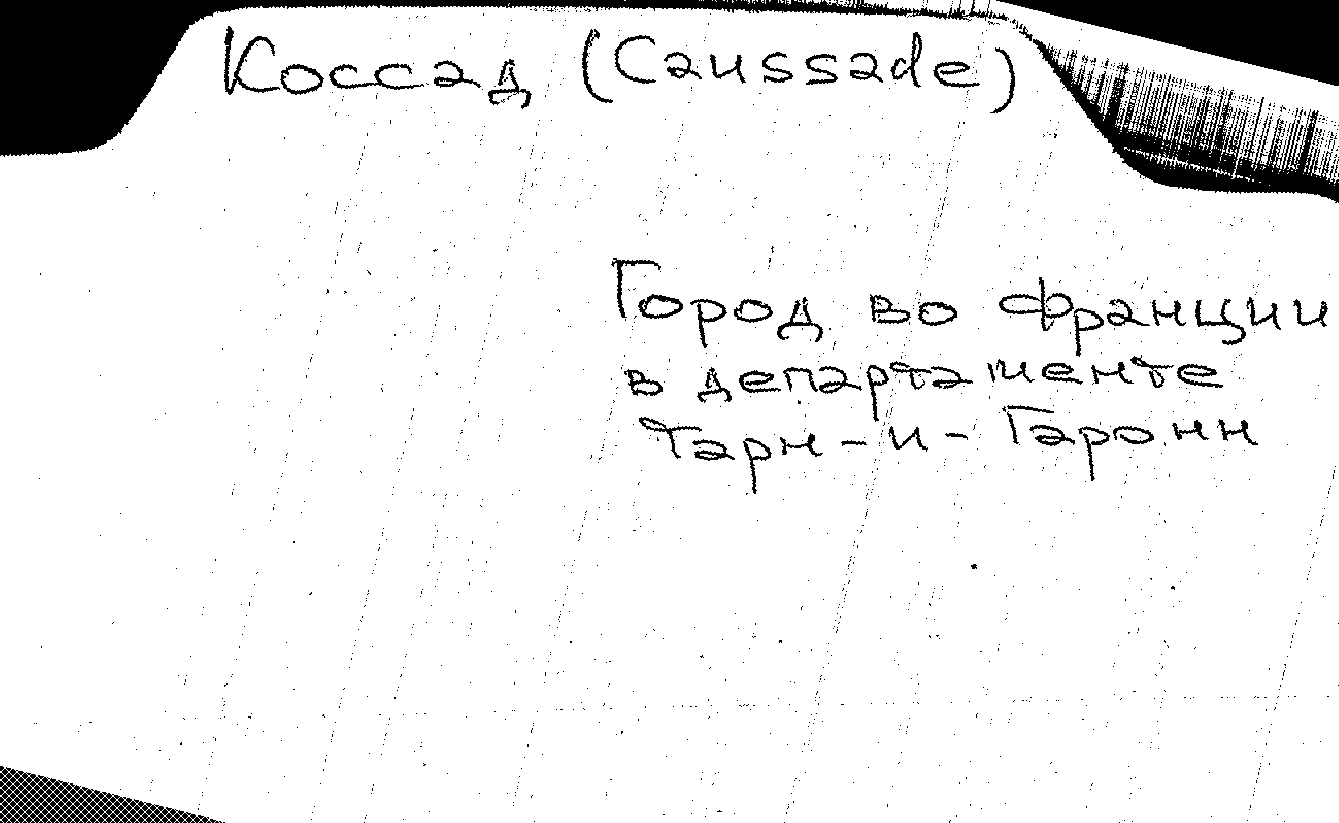 Коссад (Caussade)
Город во Франции
в департаменте
Тарн-и-Гаронн